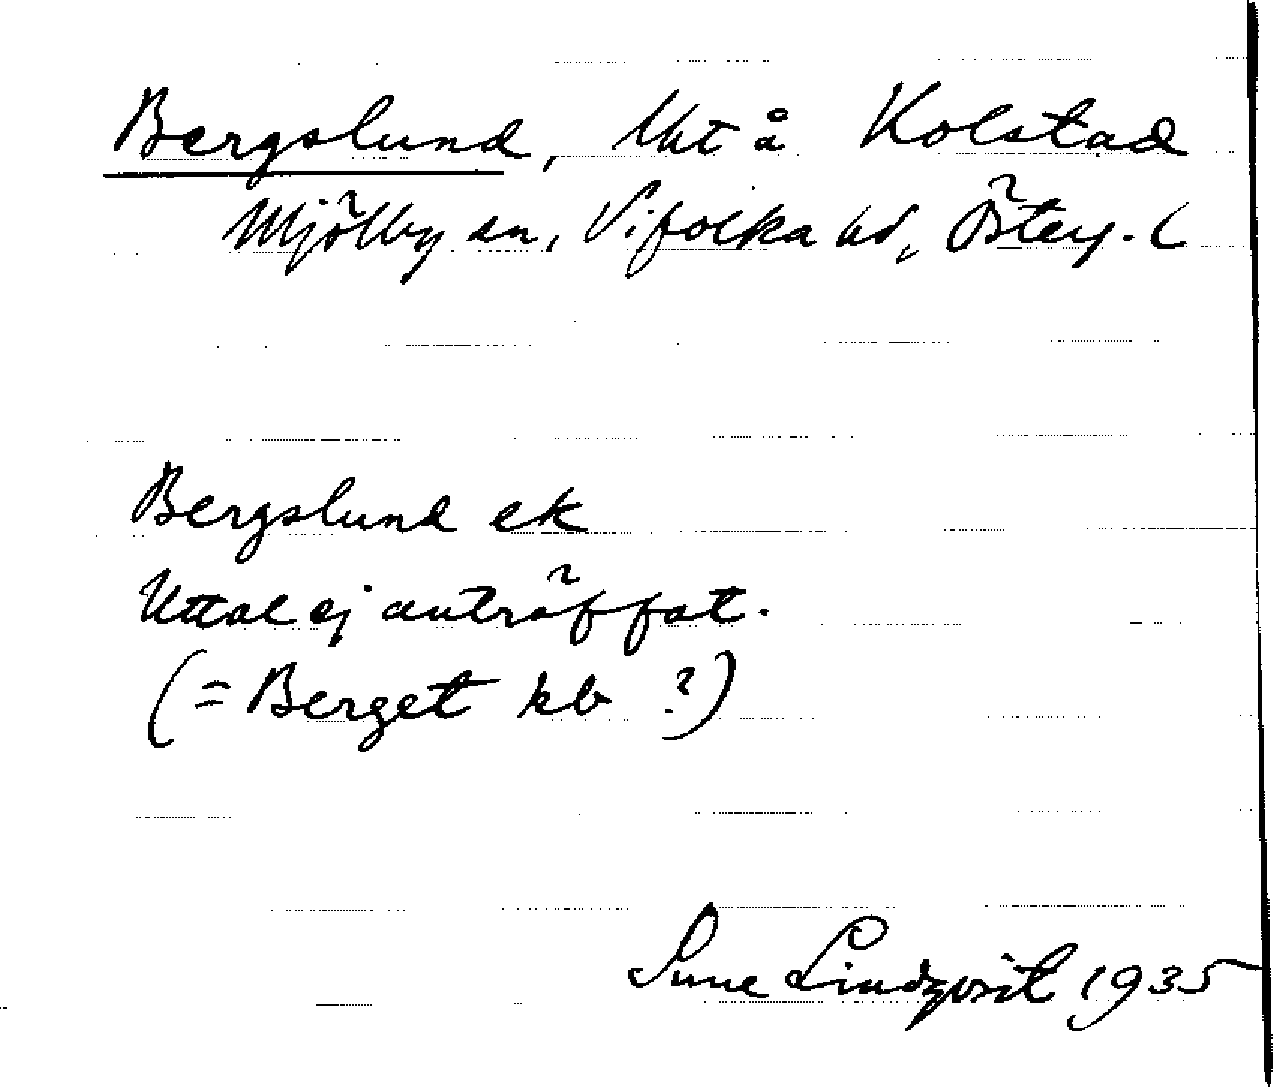 Bergslund, lht å Kolstad
Mjölby sn, Vifolka hd,Österg. l
Bergslund ek
Uttal ej anträffat.
(= Berget kb ?)
Sune Lindqvist 1935